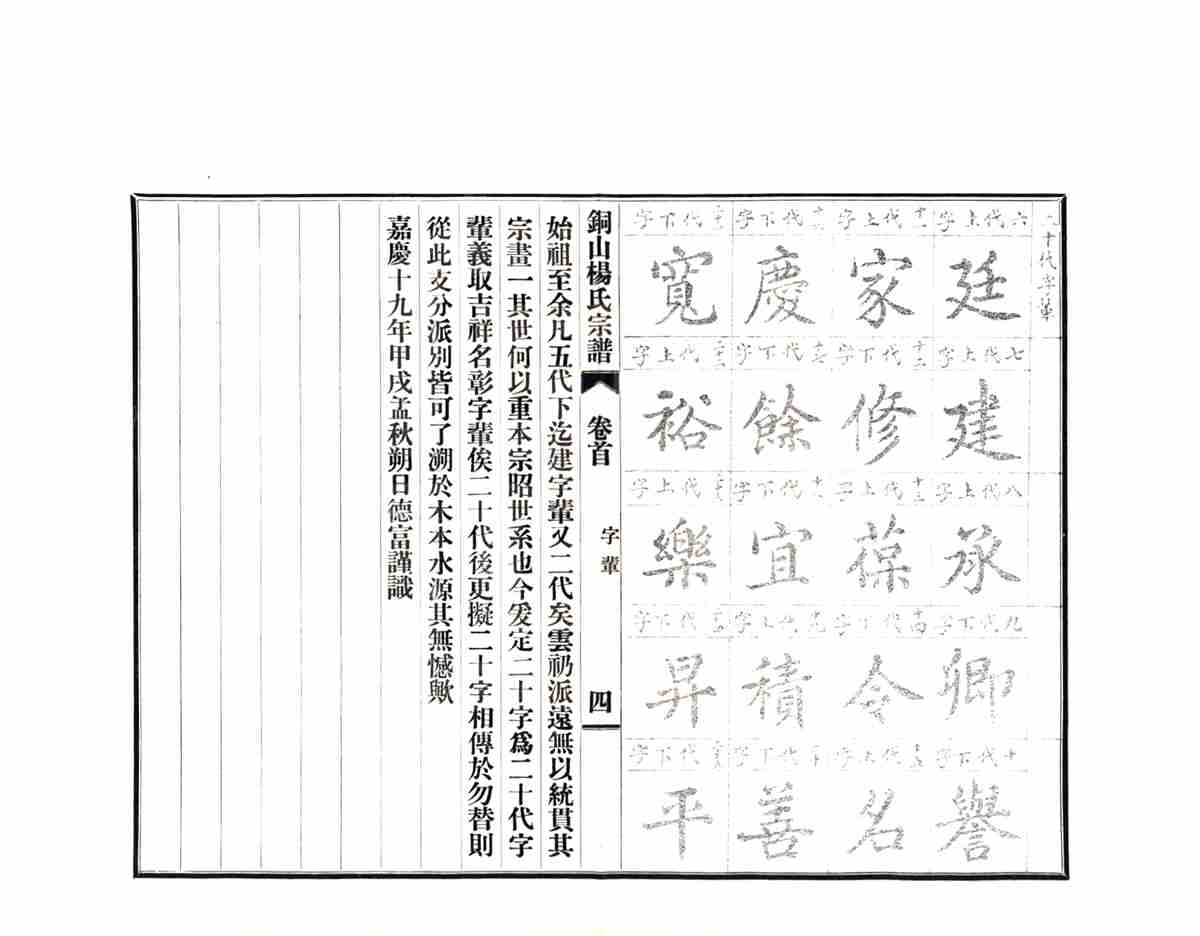 二十代字輩
六代上字
廷
七代上字
建
八代上字
承
九代下字
卿
十代下字
譽
十一代上字
家
十二代下字
修
十三代上字
葆
十四代下字
令
十五代上字
名
十六代下字
慶
十七代下字
餘
十八代下字
宜
十九代上字
積
二十代下字
善
二十一代下字
寬
二十二代上字
裕
二十三代上字
樂
二十四代下字
昇
二十五代下字
平
銅山楊氏宗譜 卷首 字輩 四
始祖至余凡五代下迄建字輩又二代矣雲礽派遠無以統貫其
宗畫一其世何以重本宗昭世系也今爰定二十字爲二十代字
輩義取吉祥名彰字輩俟二十代後更擬二十字相傳於勿替則
從此支分派別皆可了溯於木本水源其無憾歟
嘉慶十九年甲戌孟秋朔日德富謹識